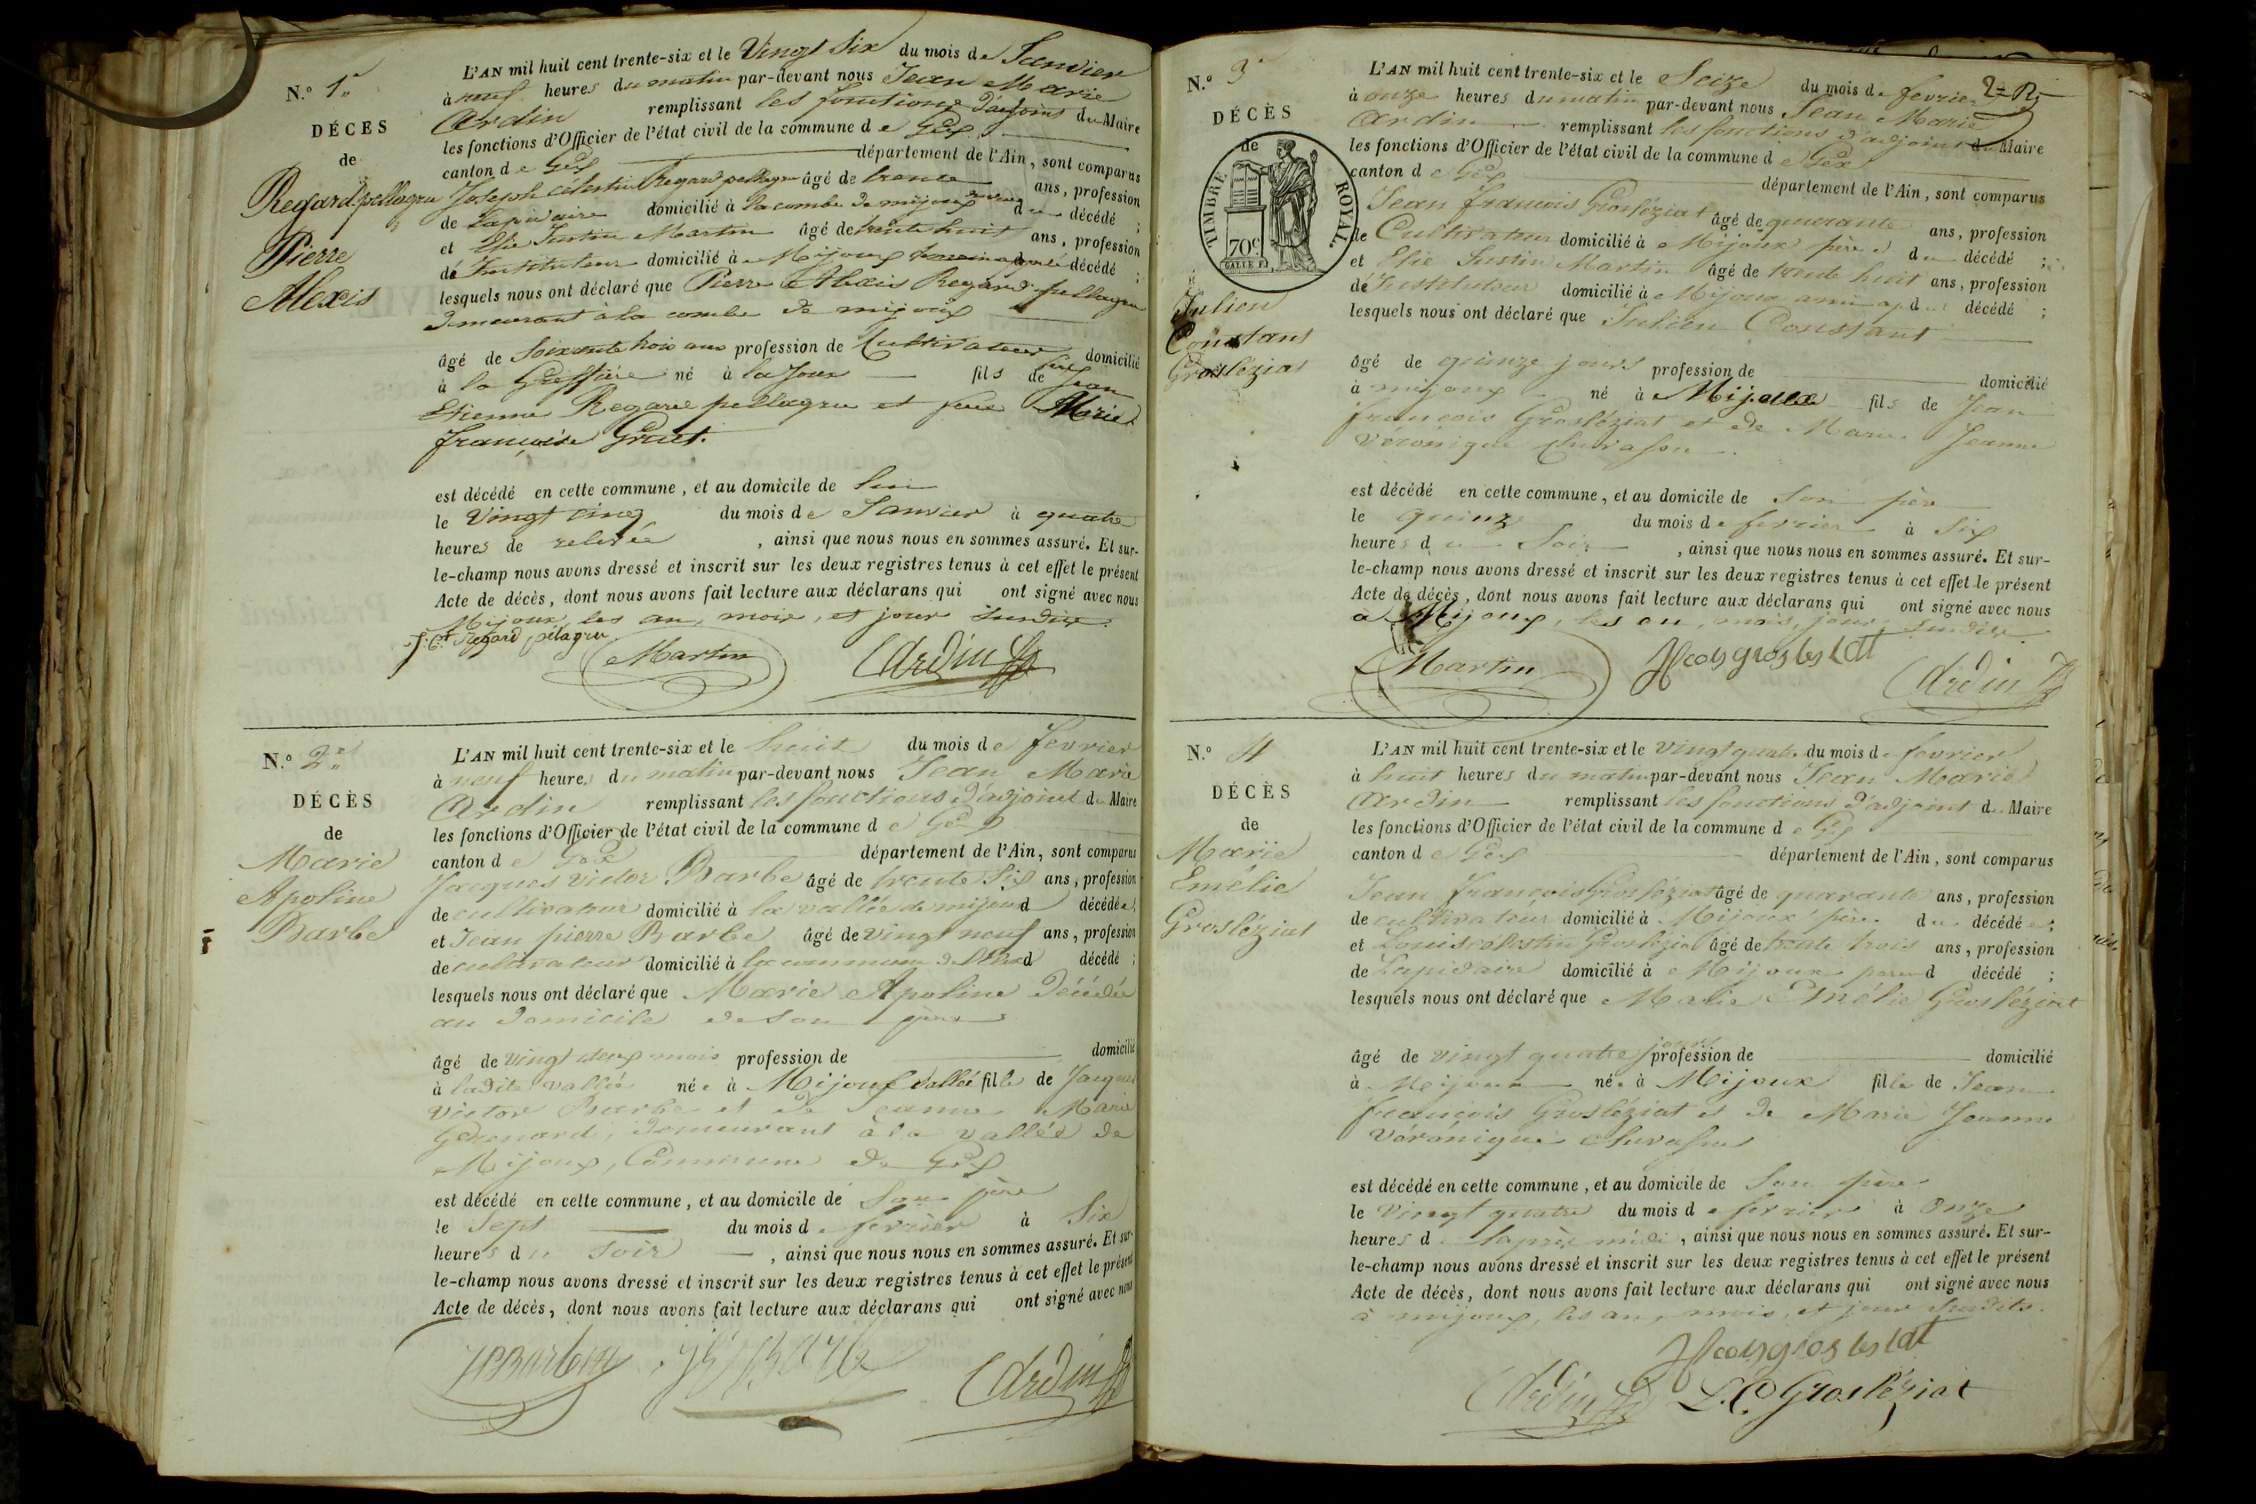 N.º 1.er
DÉCES
de
Regard pellagru
Pierre
Alexis
L'AN mil huit cent trente-six et le Vingt Six du mois de Janvier
à neuf heures du matin par-devant nous Jean Marie
Ardin remplissant les fonctions d'adjoint du Maire
les fonctions d'Officier de l'état civil de la commune de Gex
canton de Gex département de l'Ain, sont comparus
Joseph célestin Regard pellagru âgé de trente ans, profession
de Lapidaire domicilié à la combe de mijoux du décédé ;
et Elie Justin Martin âgé de trente huit ans, profession
de Instituteur domicilié à Mijoux décédé ;
lesquels nous ont déclaré que Pierre Alexis Regard pellagru
demeurant à la combe de mijoux
âgé de Soixante trois ans profession de Cultivateur domicilié
à la Greffière né à la Joux fils de feu Jean
Etienne Regard pellagru et feue Marie
françoise Grout.
est décédé en cette commune, et au domicile de lui
le Vingt cinq du mois de Janvier à quatre
heures de relevée , ainsi que nous nous en sommes assuré. Et sur-
le-champ nous avons dressé et inscrit sur les deux registres tenus à cet effet le présent
Acte de décès, dont nous avons fait lecture aux déclarans qui ont signé avec nous
Mijoux, les an, mois, et jour susdits.
J. C.t Regard pélagru Martin Ardin
N.º 2.e
DÉCÈS
de
Marie
Apoline
Barbe
L'AN mil huit cent trente-six et le huit du mois de fevrier
à neuf heures du matin par-devant nous Jean Marie
Ardin remplissant les fonctions d'adjoint du Maire
les fonctions d'Officier de l'état civil de la commune de Gex
canton de Gex département de l'Ain, sont comparus
Jacques victor Barbe âgé de trente Six ans, profession
de cultivateur domicilié à la vallée de mijoux d décédée ;
et Jean pierre Barbe âgé de vingt neuf ans, profession
de cultivateur domicilié à la commune d décédé ;
lesquels nous ont déclaré que Marie Apoline décédée
au domicile de son père
âgé de vingt deux mois profession de domicilié
à ladite vallée née à Mijoux vallée fille de Jacques
victor Barbe et de Jeanne Marie
demeurant à la vallée de
Mijoux, Commune de Gex
est décédé en cette commune, et au domicile de Son père
le Sept du mois de fevrier à Six
heures du Soir , ainsi que nous nous en sommes assuré. Et sur-
le-champ nous avons dressé et inscrit sur les deux registres tenus à cet effet le présent
Acte de décès, dont nous avons fait lecture aux déclarans qui ont signé avec nous
Ardin
N.º 3
DÉCÈS
de
TIMBRE ROYAL.
70c
Julien
Constant
Grosléziat
L'AN mil huit cent trente-six et le Seize du mois de fevrier
à onze heures du matin par-devant nous Jean Marie
Ardin remplissant les fonctions d'adjoint du Maire
les fonctions d'Officier de l'état civil de la commune de Gex
canton de Gex département de l'Ain, sont comparus
Jean francois Grosléziat âgé de quarante ans, profession
de Cultivateur domicilié à Mijoux père du décédé ;
et Elie Justin Martin âgé de trente huit ans, profession
de Instituteur domicilié à Mijoux ami d décédé ;
lesquels nous ont déclaré que Julien Constant
âgé de quinze jours profession de domicilié
à mijoux né à Mijoux fils de Jean
francois Grosléziat et de Marie Jeanne
véronique
est décédé en cette commune, et au domicile de Son père
le quinze du mois de fevrier à Six
heures du Soir , ainsi que nous nous en sommes assuré. Et sur-
le-champ nous avons dressé et inscrit sur les deux registres tenus à cet effet le présent
Acte de décès, dont nous avons fait lecture aux déclarans qui ont signé avec nous
à Mijoux, les an, mois, jour susdits.
Martin Ardin
N.º 4
DÉCÈS
de
Marie
Emélie
Grosléziat
L'AN mil huit cent trente-six et le vingt quatre du mois de fevrier
à huit heures du matin par-devant nous Jean Marie
Ardin remplissant les fonctions d'adjoint du Maire
les fonctions d'Officier de l'état civil de la commune de Gex
canton de Gex département de l'Ain, sont comparus
Jean françois Grosléziat âgé de quarante ans, profession
de cultivateur domicilié à Mijoux père de décédée ;
et Louis célestin Grosléziat âgé de trente trois ans, profession
de Lapidaire domicilié à Mijoux parent d décédé ;
lesquels nous ont déclaré que Marie Emélie Grosléziat
âgé de vingt quatre jours profession de domicilié
à Mijoux née à Mijoux fille de Jean
françois Grosléziat et de Marie Jeanne
véronique
est décédé en cette commune, et au domicile de Son père
le vingt quatre du mois de fevrier à onze
heures d laprès midi , ainsi que nous nous en sommes assuré. Et sur-
le-champ nous avons dressé et inscrit sur les deux registres tenus à cet effet le présent
Acte de décès, dont nous avons fait lecture aux déclarans qui ont signé avec nous
à mijoux, les an, mois, et jour susdits.
Ardin L.C. Grosléziat